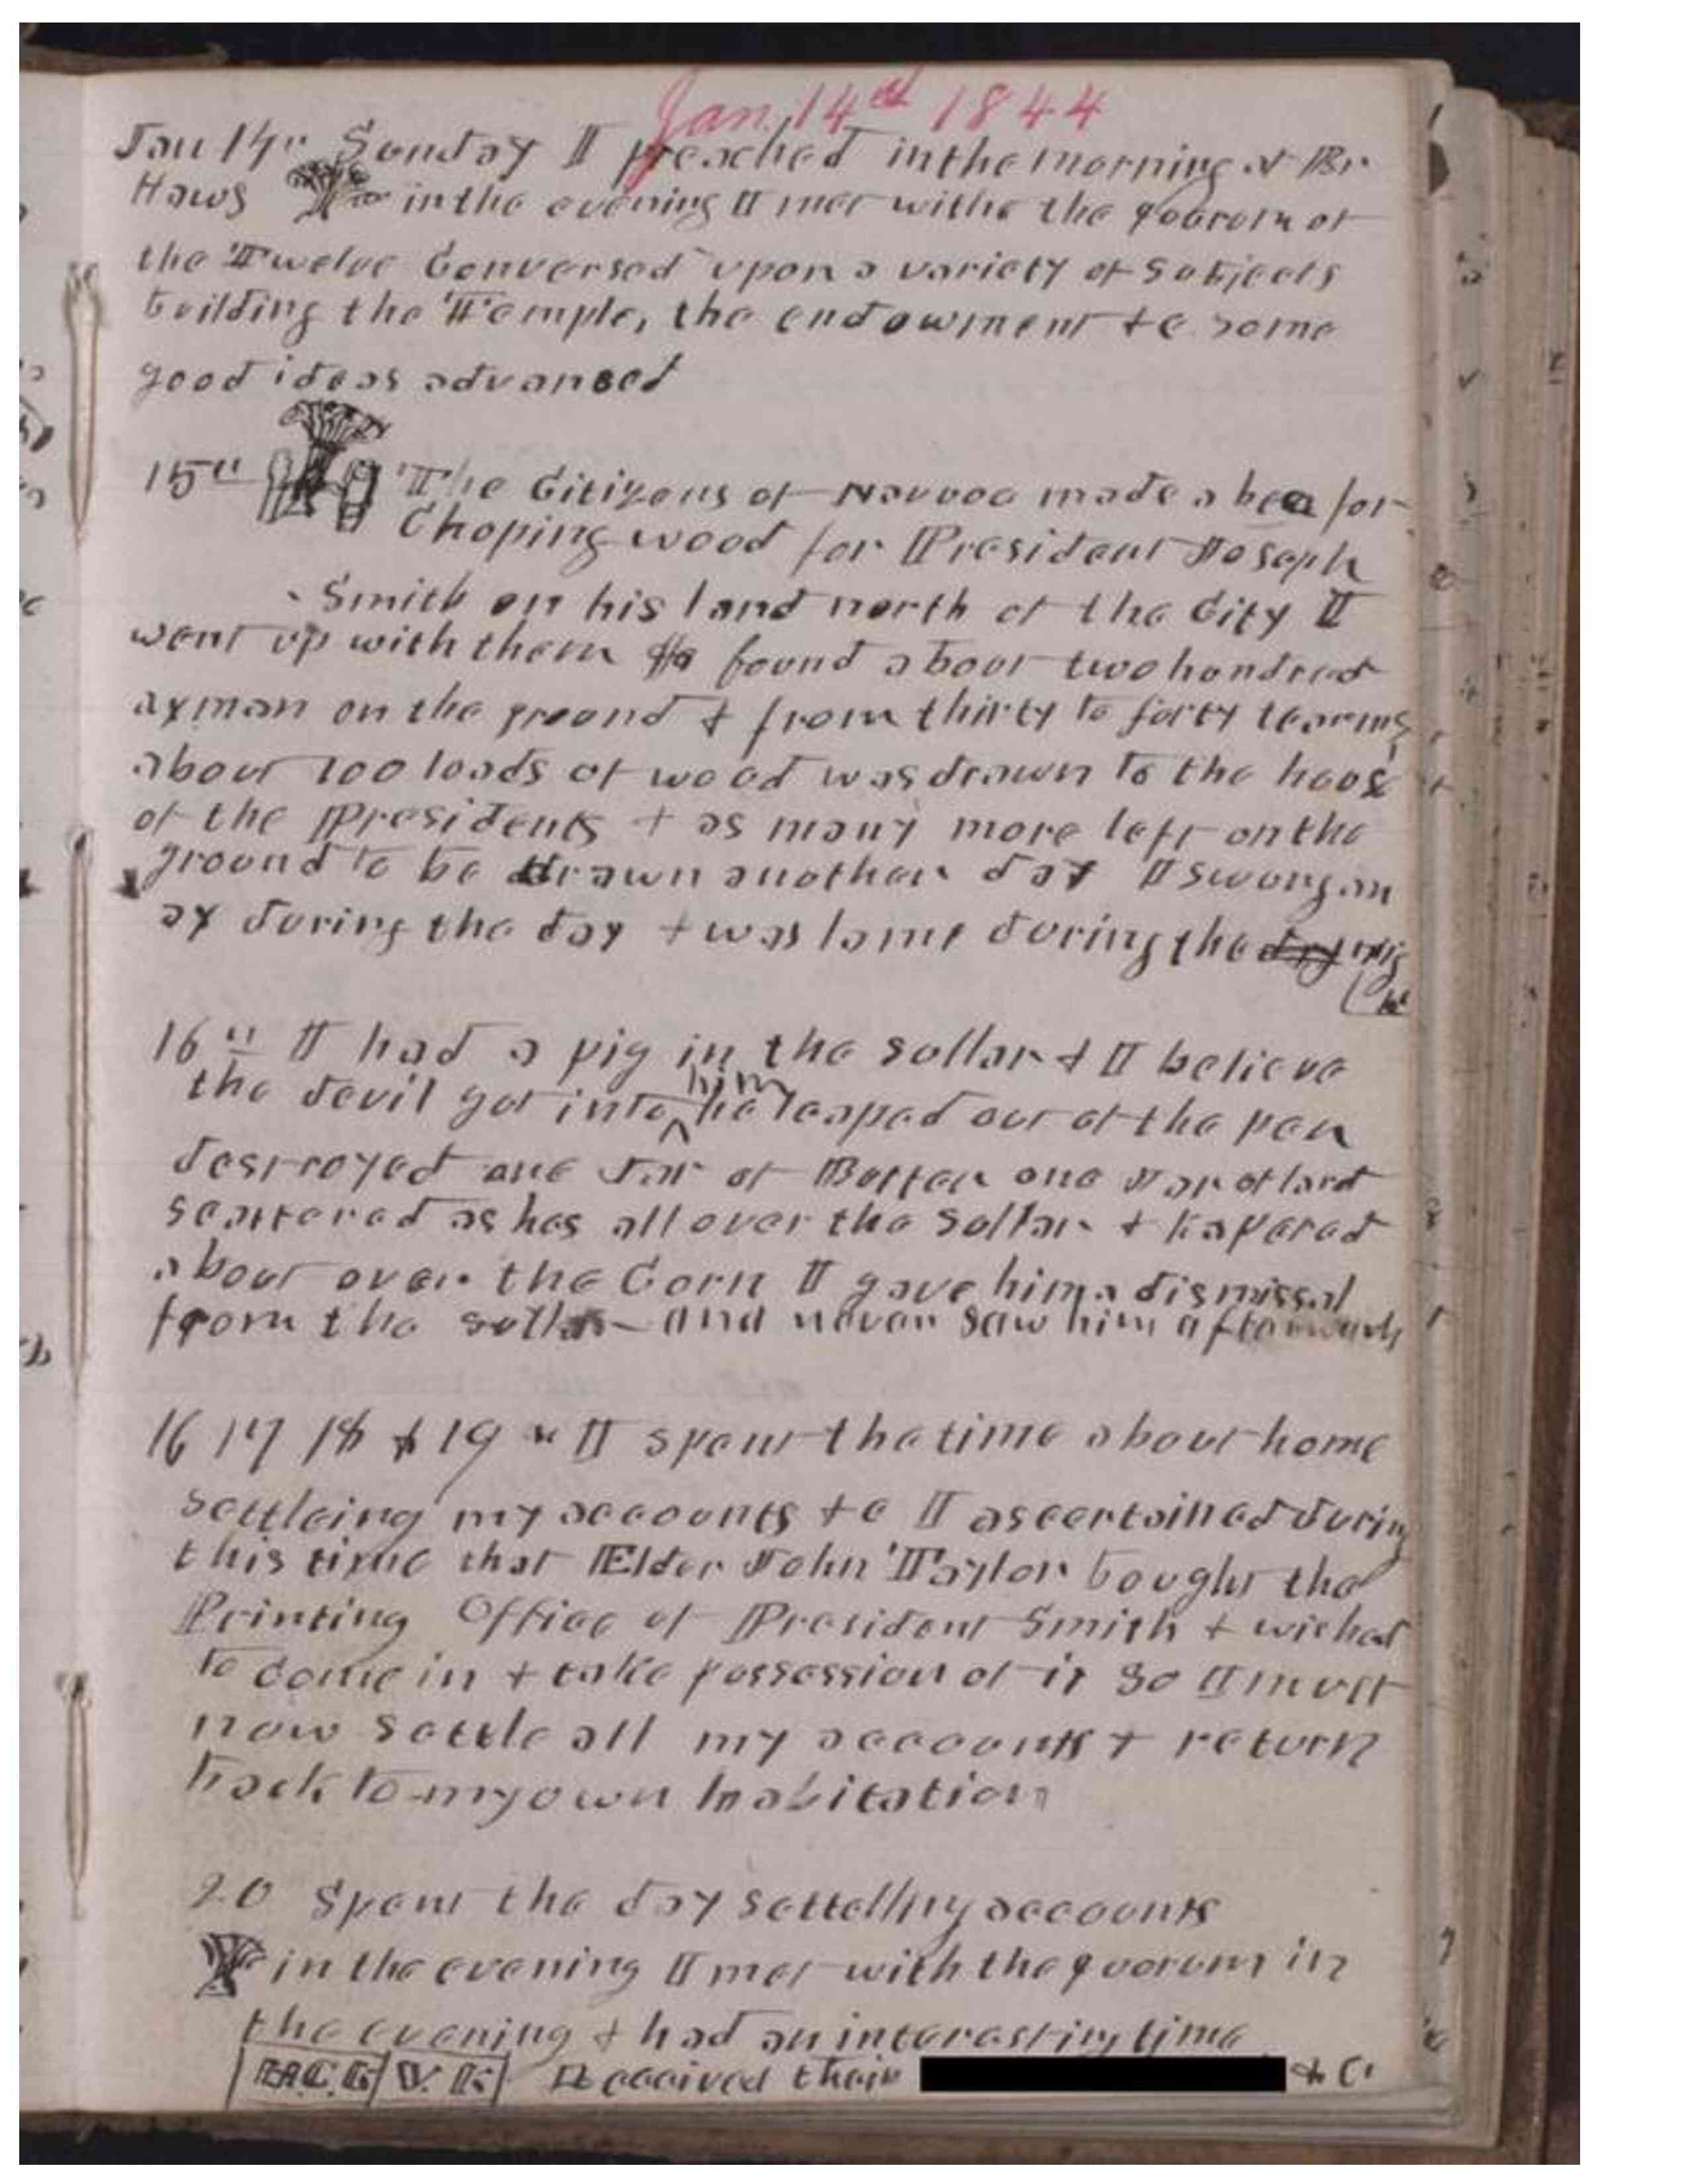 Jan. 14th 1844
Jan 14" Sunday I preached in the morning at Br
Haws in the evening I met withe the quorum of
the Twelve Conversed upon a variety of subjects
building the Temple, the endowment &c some
good ideas advanced
15" The Citizens of Nauvoo made a bee for
Choping wood for President Joseph
Smith on his land north of the City I
went up with them & found about two hundred
axman on the ground & from thirty to forty teams
about 100 loads of wood was drawn to the hous
of the Presidents & as many more left on the
ground to be drawn another day I swong an
ax during the day & was lame during the day nig
ht
16" I had a pig in the sellar & I believe
the devil got into him he leaped out of the pen
destroyed one Jar of Butter one Jar of lard
scattered ashes all over the sellar & kapered
about over the Corn I gave him a dismissal
from the sellar and never saw him afterwards
16 17 18 & 19" I spent the time about home
settleing my accounts &c I ascertained during
this time that Elder John Taylor bought the
Printing Office of President Smith & wished
to come in & take possession of it so I must
now settle all my accounts & return
back to my own habitation
20 Spent the day settelling accounts
in the evening I met with the quorum in
the evening & had an interesting time
H.C.K V. K Received their & C